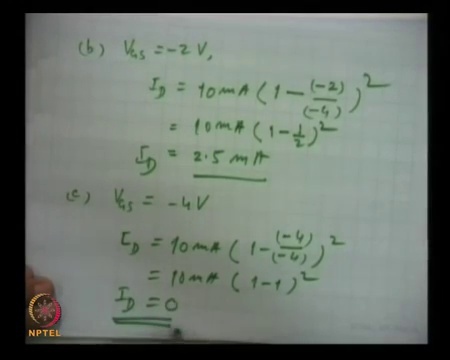 (b) VGS = -2 V,
ID = 10 mA ( 1 - (-2)/(-4) )²
= 10 mA ( 1 - 1/2 )²
ID = 2.5 mA
(c) VGS = -4 V
ID = 10 mA ( 1 - (-4)/(-4) )²
= 10 mA ( 1 - 1 )²
ID = 0
NPTEL